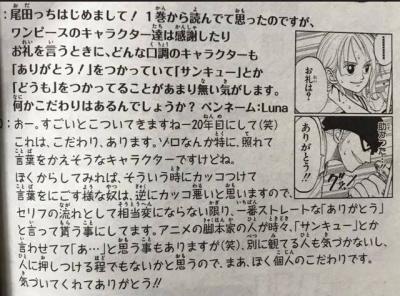 :尾田っちはじめまして！1巻から読んでて思ったのですが、
ワンピースのキャラクター達は感謝したり
お礼を言うときに、どんな口調のキャラクターも
「ありがとう！」をつかっていて「サンキュー」とか
「どうも」をつかってることがあまり無い気がします。
何かこだわりはあるんでしょうか？ペンネーム:Luna
:おー。すごいとこついてきますねー20年目にして(笑)
これは、こだわり、あります。ゾロなんか特に、照れて
言葉をかえそうなキャラクターですけどね。
ぼくからしてみれば、そういう時にカッコつけて
言葉をにごす様な奴は、逆にカッコ悪いと思いますので、
セリフの流れとして相当変にならない限り、一番ストレートな「ありがとう」
と言って貰う事にしてます。アニメの脚本家の人が時々、「サンキュー」とか
言わせてて「あ…」と思う事もありますが(笑)、別に観てる人も気づかないし、
人に押しつける程でもないかと思うので、まあ、ぼく個人のこだわりです。
気づいてくれてありがとう!!
お礼は？
助かった
ありがとう!!